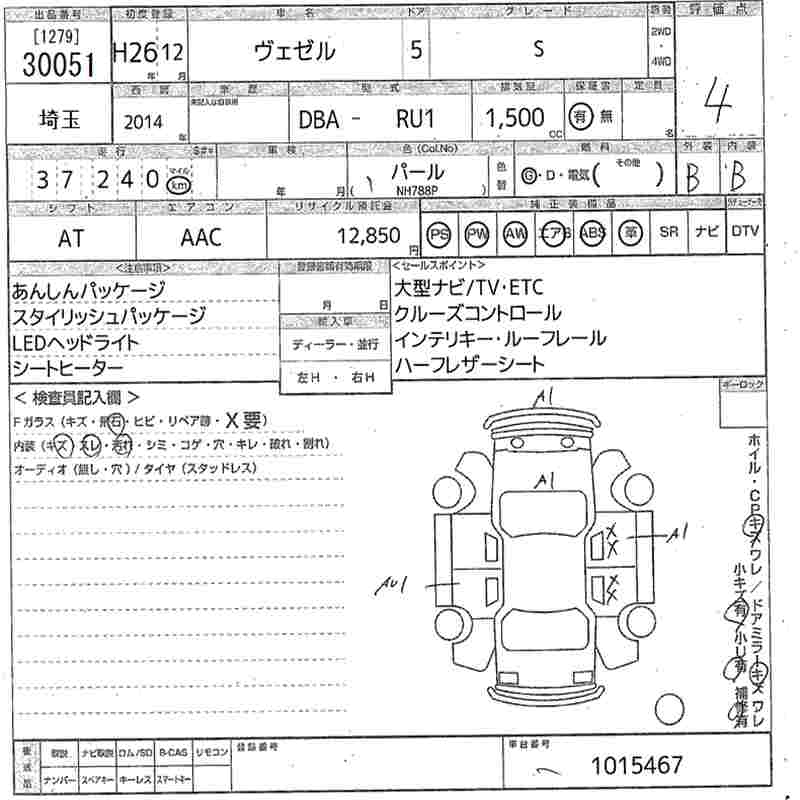 出品番号 初度登録 車名 ドア グレード 駆動 評価点
[1279]
30051 H26 12 ヴェゼル 5 S 2WD・4WD 4
年 月
西暦 車歴 型式 排気量 保証書 定員
埼玉 2014 年 DBA - RU1 1,500 cc 有 無 名
走行 車検 色(Col.No) 燃料 外装 内装
37,240 マイル km 年 月 パール 色替 G・D・電気( その他 ) B B
NH788P
シフト エアコン リサイクル預託金 純正装備品
AT AAC 12,850円 PS PW AW エアB ABS 革 SR ナビ DTV
<注意事項> 登録書類有効期限 <セールスポイント>
あんしんパッケージ 月 日 大型ナビ/TV・ETC
スタイリッシュパッケージ 輸入車 クルーズコントロール
LEDヘッドライト ディーラー・並行 インテリキー・ルーフレール
シートヒーター 左H・右H ハーフレザーシート
<検査員記入欄> キーロック
Fガラス(キズ・飛石・ヒビ・リペア跡・X要)
内装(キズ・スレ・汚れ・シミ・コゲ・穴・キレ・破れ・割れ)
オーディオ(無し・穴)/タイヤ(スタッドレス)
A1
A1
XX A1
AU1 XX
ホイル・CPキズワレ/ドアミラーキズワレ
小キズ有 小U有 補修有
後送品 取説 ナビ取説 ロム/SD B-CAS リモコン 登録番号 車台番号
ナンバー スペアキー キーレス スマートキー 1015467